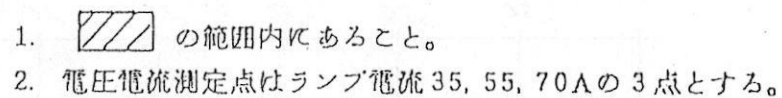 1. の範囲内にあること。
2. 電圧電流測定点はランプ電流35, 55, 70Aの3点とする。